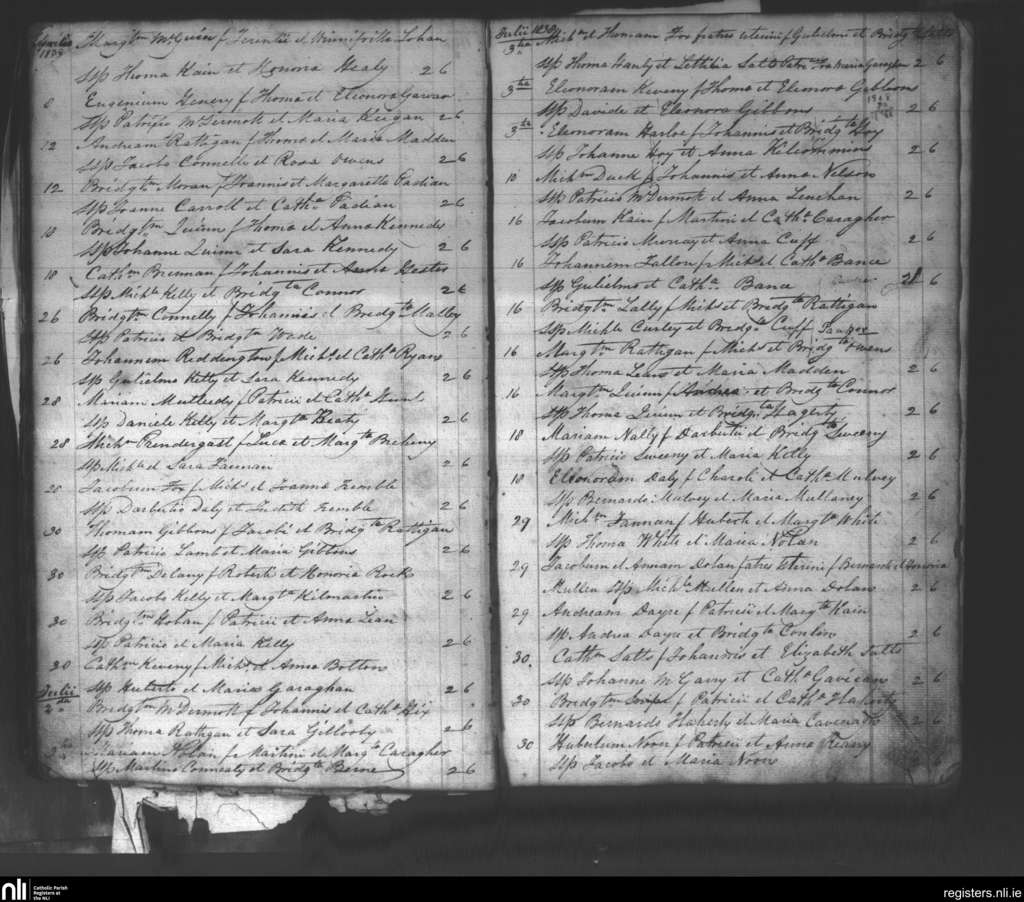 1839
Margtm McGuire f Terintii et Winnifrilla Lohan
Ssp Thoma Kain et Honora Healy 2 6
8 Eugenium f Thoma et Eleonora
Ssp Patricio McDermott et Maria Keegan 2 6
12 Andream Rattigan f Thoma et Maria Madden
Ssp Jacobo Connelly et Rosa Owens 2 6
12 Bridgtm Moran f Joannis et Margaretta Fadian
Ssp Joanne Carroll et Catha Fadian 2 6
18 Bridgtm Quinn f Thoma et Anna Kennedy
Ssp Johanne Quinn et Sara Kennedy 2 6
18 Cathm Brennan f Johannis et Anna
Ssp Michle Kelly et Bridgta Connor 2 6
26 Bridgtm Connelly f Johannis et Bridgta Malley
Ssp Patricio et Bridgta Wade 2 6
26 Johannem Reddington f Michs et Catha Ryan
Ssp Gulielmo Kelly et Sara Kennedy 2 6
28 Miriam f Patricii et Catha
Ssp Daniele Kelly et Margta Healy 2 6
28 Michm Prendergast f Luca et Margta
Ssp Michle et Sara Fannan 2 6
28 Jacobum Fox f Michs et Joanna Tremble
Ssp Darbutio Daly et Judith Tremble 2 6
30 Thomam Gibbons f Jacobi et Bridgta Rattigan
Ssp Patricio Lamb et Maria Gibbons 2 6
30 Bridgtm Delany f Roberti et Honoria Rock
Ssp Jacobo Kelly et Margta Kilmartin 2 6
30 Bridgtm Hoban f Patricii et Anna
Ssp Patricio et Maria Kelly 2 6
30 Cathm Keveny f Michs et Anna Botton
Ssp Huberto et Maria Garaghan 2 6
Julii
2da Bridgtm McDermott f Johannis et Catha Hix
Ssp Thoma Rattigan et Sara Gillooly 2 6
Mariam Nolan f Martini et Margta Caragher
Ssp Martino Conneaty et Bridgta Berne 2 6
Julii 1839
3tia Michm et Thomam Fox fratres uterini f Gulielmi et Bridgta
Ssp Thoma Hanly et Lettitia 2 6
3tia Eleonoram Keveny f Thoma et Elenora Gibbons
Ssp Davide et Eleonora Gibbons 2 6
3tia Elenoram Harloe f Johannis et Bridgta Hoy
Ssp Johanne Hoy et Anna 2 6
10 Michm Duck f Johannis et Anna Nelson
Ssp Patricio McDermott et Anna Lenehan 2 6
16 Jacobum Kain f Martini et Catha Caragher
Ssp Patricio Murray et Anna Cuff 2 6
16 Johannem Fallon f Michs et Catha Bance
Ssp Gulielmo et Catha Bance 2 6
16 Bridgtm Lally f Michs et Bridgta Rattigan
Ssp Michle Curley et Bridgta Cuff Pauper
16 Margtm Rattigan f Michs et Bridgta Owens
Ssp Thoma et Maria Madden 2 6
16 Margtm Quinn f Andrea et Bridgta Connor
Ssp Thoma Quinn et Bridgta Hagerty 2 6
18 Mariam Nally f Darbutii et Bridgta Sweeny
Ssp Patricio Sweeny et Maria Kelly 2 6
18 Elleonoram Daly f Charoli et Catha Mulvey
Ssp Bernardo Mulvey et Maria Mullaney 2 6
29 Michm Fannan f Huberti et Margta White
Ssp Thoma White et Maria Nolan 2 6
29 Jacobum et Annam Dolan fatres uterini f Bernardi et Honoria
Mullen Ssp Michle Mullen et Anna Dolan 2 6
29 Andream Dayer f Patricii et Margta Kain
Ssp Andrea Daya et Bridgta Conlon 2 6
30 Cathm Salts f Johannis et Elizabeth Salts
Ssp Johanne McGarry et Catha Gavican 2 6
30 Bridgtm f Patricii et Catha Flaherty
Ssp Bernardo Flaherty et Maria Cavenagh 2 6
30 Hubertum Noon f Patricii et Anna Feany
Ssp Jacobo et Maria Noon 6
nli Catholic Parish
Registers at
the NLI
registers.nli.ie